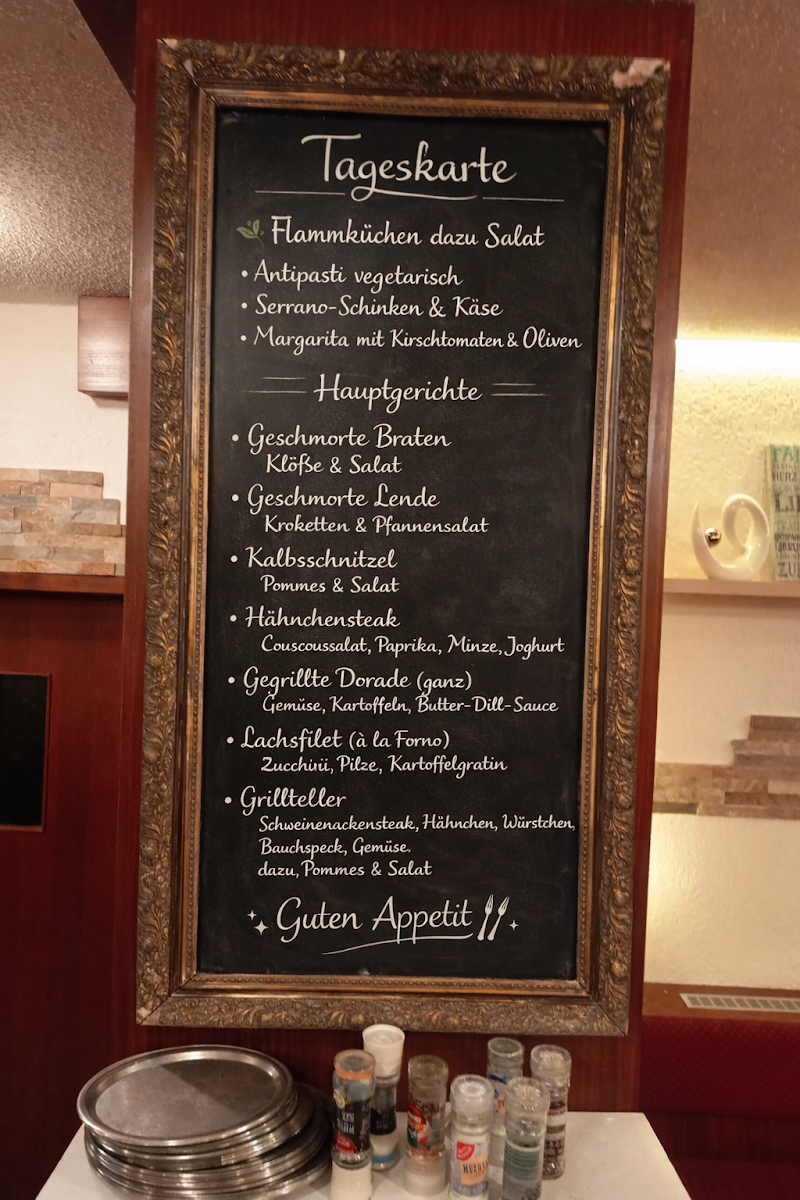 Tageskarte
Flammküchen dazu Salat
• Antipasti vegetarisch
• Serrano-Schinken & Käse
• Margarita mit Kirschtomaten & Oliven
Hauptgerichte
• Geschmorte Braten
Klöße & Salat
• Geschmorte Lende
Kroketten & Pfannensalat
• Kalbsschnitzel
Pommes & Salat
• Hähnchensteak
Couscoussalat, Paprika, Minze, Joghurt
• Gegrillte Dorade (ganz)
Gemüse, Kartoffeln, Butter-Dill-Sauce
• Lachsfilet (à la Forno)
Zucchini, Pilze, Kartoffelgratin
• Grillteller
Schweinenackensteak, Hähnchen, Würstchen,
Bauchspeck, Gemüse.
dazu, Pommes & Salat
Guten Appetit